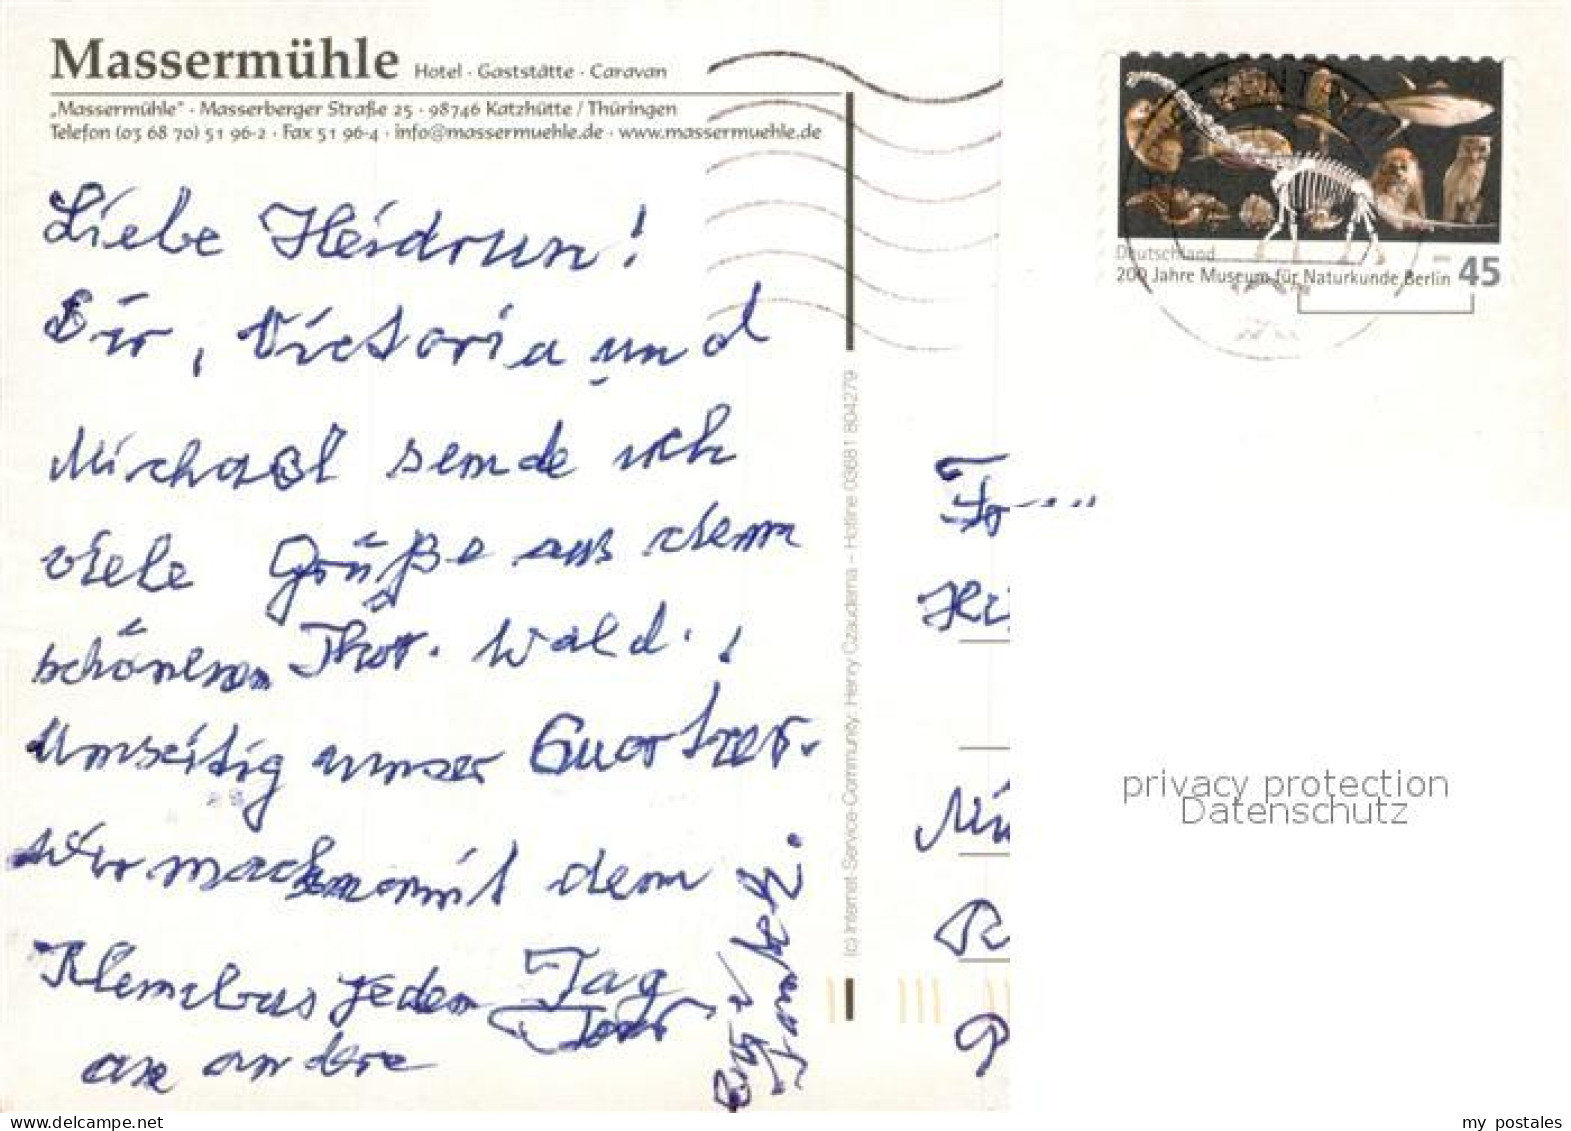 Massermühle Hotel · Gaststätte · Caravan
„Massermühle" · Masserberger Straße 25 · 98746 Katzhütte / Thüringen
Telefon (03 68 70) 51 96-2 · Fax 51 96-4 · info@massermuehle.de · www.massermuehle.de
Liebe Heidrun!
Dir, Victoria und
Michael sende ich
viele Grüße aus dem
schönen Thür. Wald.!
Umseitig unser Quartier.
Wir machen mit dem
Kleinbus jeden Tag
eine andere Tour
(c) Internet-Service-Community: Henry Czauderna – Hotline 03681 804279
Deutschland
200 Jahre Museum für Naturkunde Berlin 45
privacy protection
Datenschutz
www.delcampe.net
my_postales